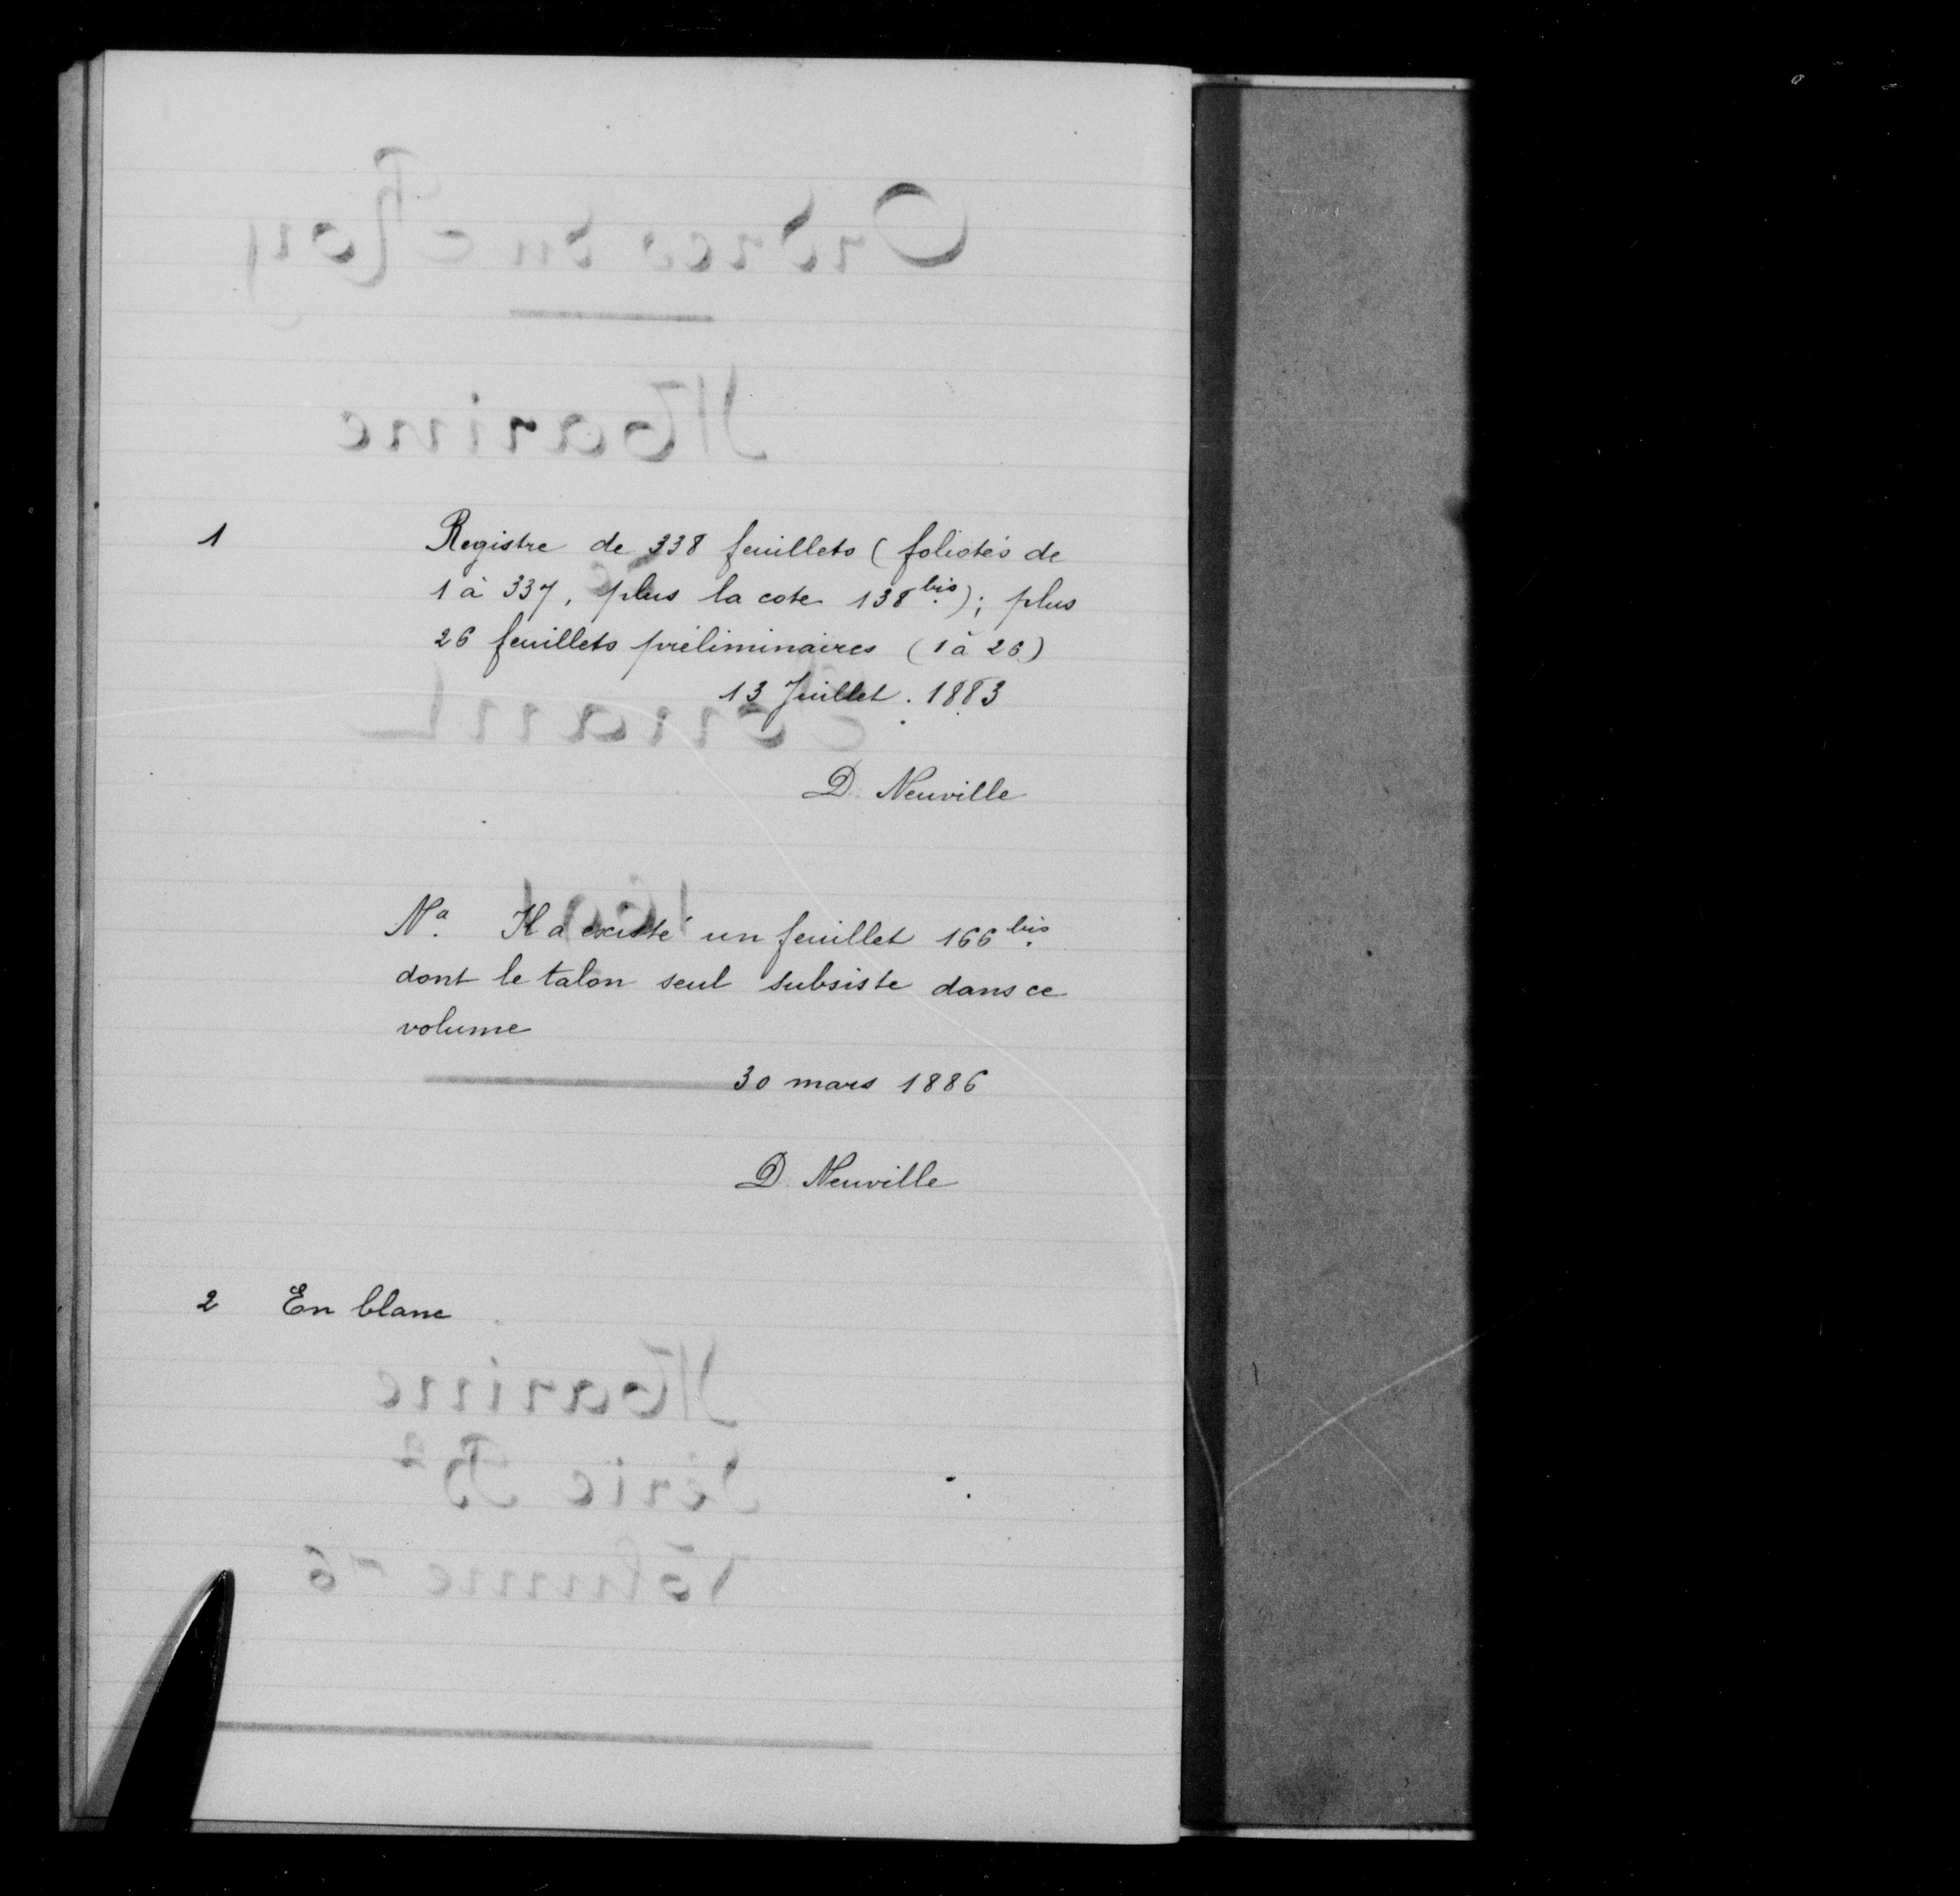 1 Registre de 338 feuillets (foliotés de
1 à 337, plus la cote 138 bis); plus
26 feuillets préliminaires (1 à 26)
13 Juillet. 1883
D. Neuville
Na. Il a existé un feuillet 166 bis
dont le talon seul subsiste dans ce
volume
30 mars 1886
D. Neuville
2 En blanc